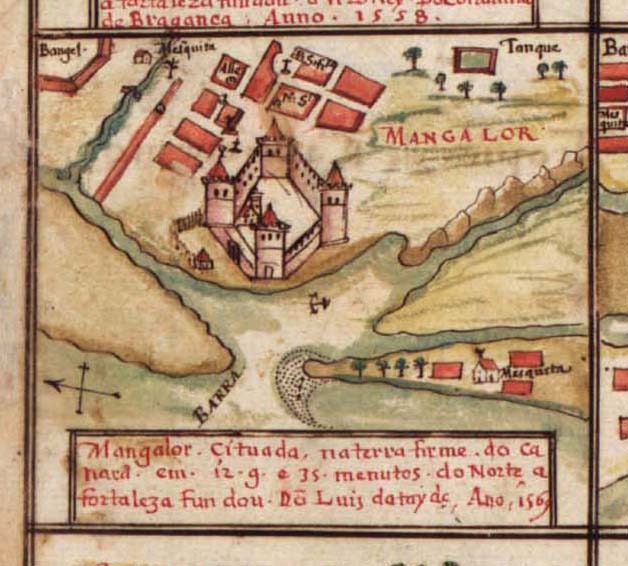 de Bragança, Anno. 1558.
Bangel.
Mesquita
Tanque
Ba
MANGALOR
Mesquita
BARRA
Mangalor. Cituada, na terra firme. do Ca
nará. em. 12. g. e 35. menutos. do Norte, a
fortaleza fundou. Dõ Luis da tayde, Ano, 1569